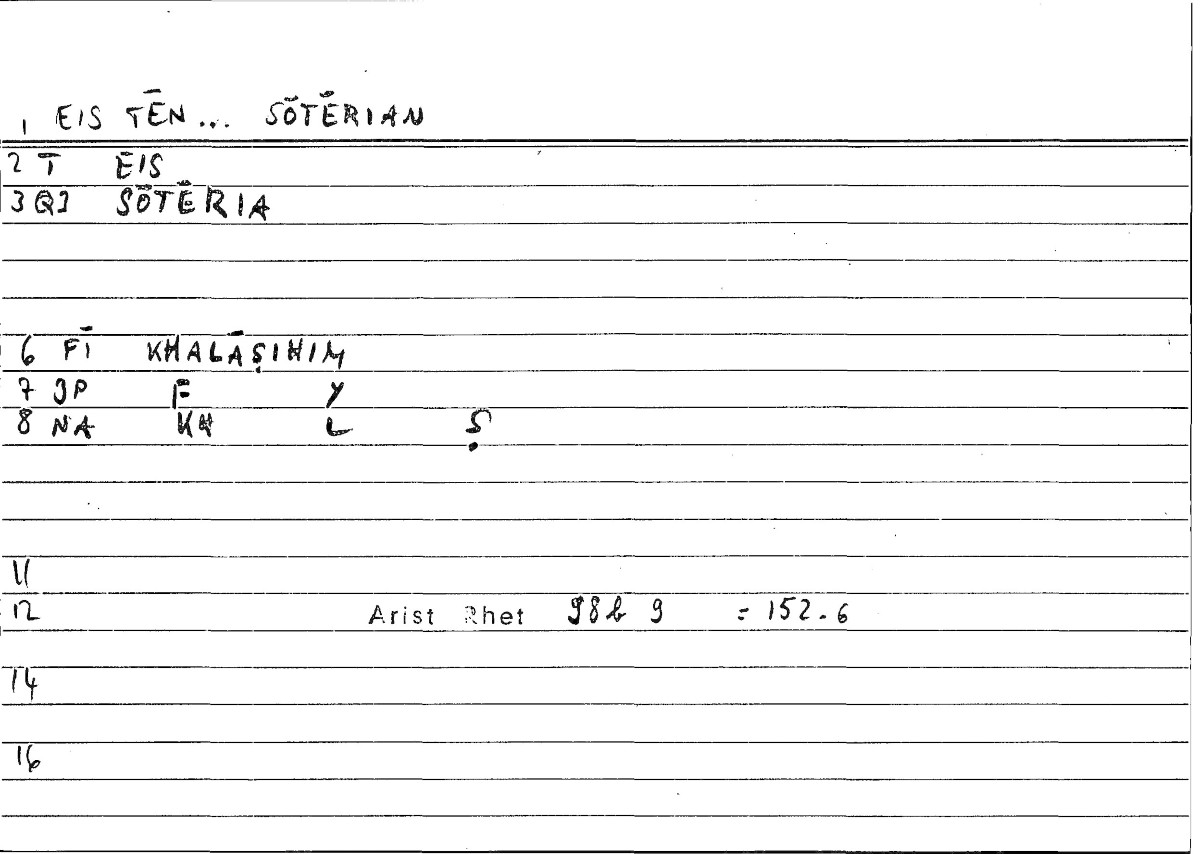 1 EIS TĒN... SŌTĒRIAN
2 T EIS
3 QJ SŌTĒRIA
6 FĪ KHALĀṢIHIM
7 JP F Y
8 NA KH L Ṣ
11
12 Arist Rhet 98b 9 = 152.6
14
16